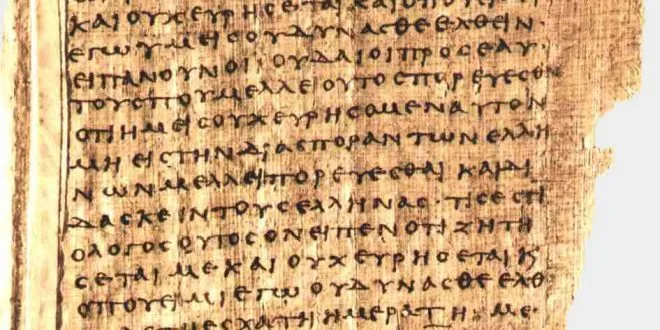 ΚΑΙΟΥΧΕΥΡΗCΕΤΑΙΚΑΙΟΠΟΥ
ΕΓΩΥΜΕΙCΟΥΔΥΝΑCΘΕΕΛΘΕΙΝ·
ΕΙΠΑΝΟΥΝΟΙΙΟΥΔΑΙΟΙΠΡΟCΕΑΥ
ΤΟΥCΠΟΥΜΕΛΛΕΙΟΥΤΟCΠΟΡΕΥΕCΘ
ΟΤΙΗΜΕΙCΟΥΧΕΥΡΗCΟΜΕΝΑΥΤΟΝ
ΜΗΕΙCΤΗΝΔΙΑCΠΟΡΑΝΤΩΝΕΛΛΗ
ΝΩΝΜΕΛΛΕΙΠΟΡΕΥΕCΘΑΙΚΑΙΔΙ
ΔΑCΚΕΙΝΤΟΥCΕΛΛΗΝΑC·ΤΙCΕCΤΙ
ΟΛΟΓΟCΟΥΤΟCΟΝΕΙΠΕΝΟΤΙΖΗΤΗ
CΕΤΑΙΜΕΚΑΙΟΥΧΕΥΡΗCΕΤΑΙΚ
ΟΠΟΥΕΙΜΙΕΓΩΟΥΔΥΝΑCΘΕΕΛΘ
ΤΗΕCΧΑΤΗΗΜΕΡΑΤΗΜΕ